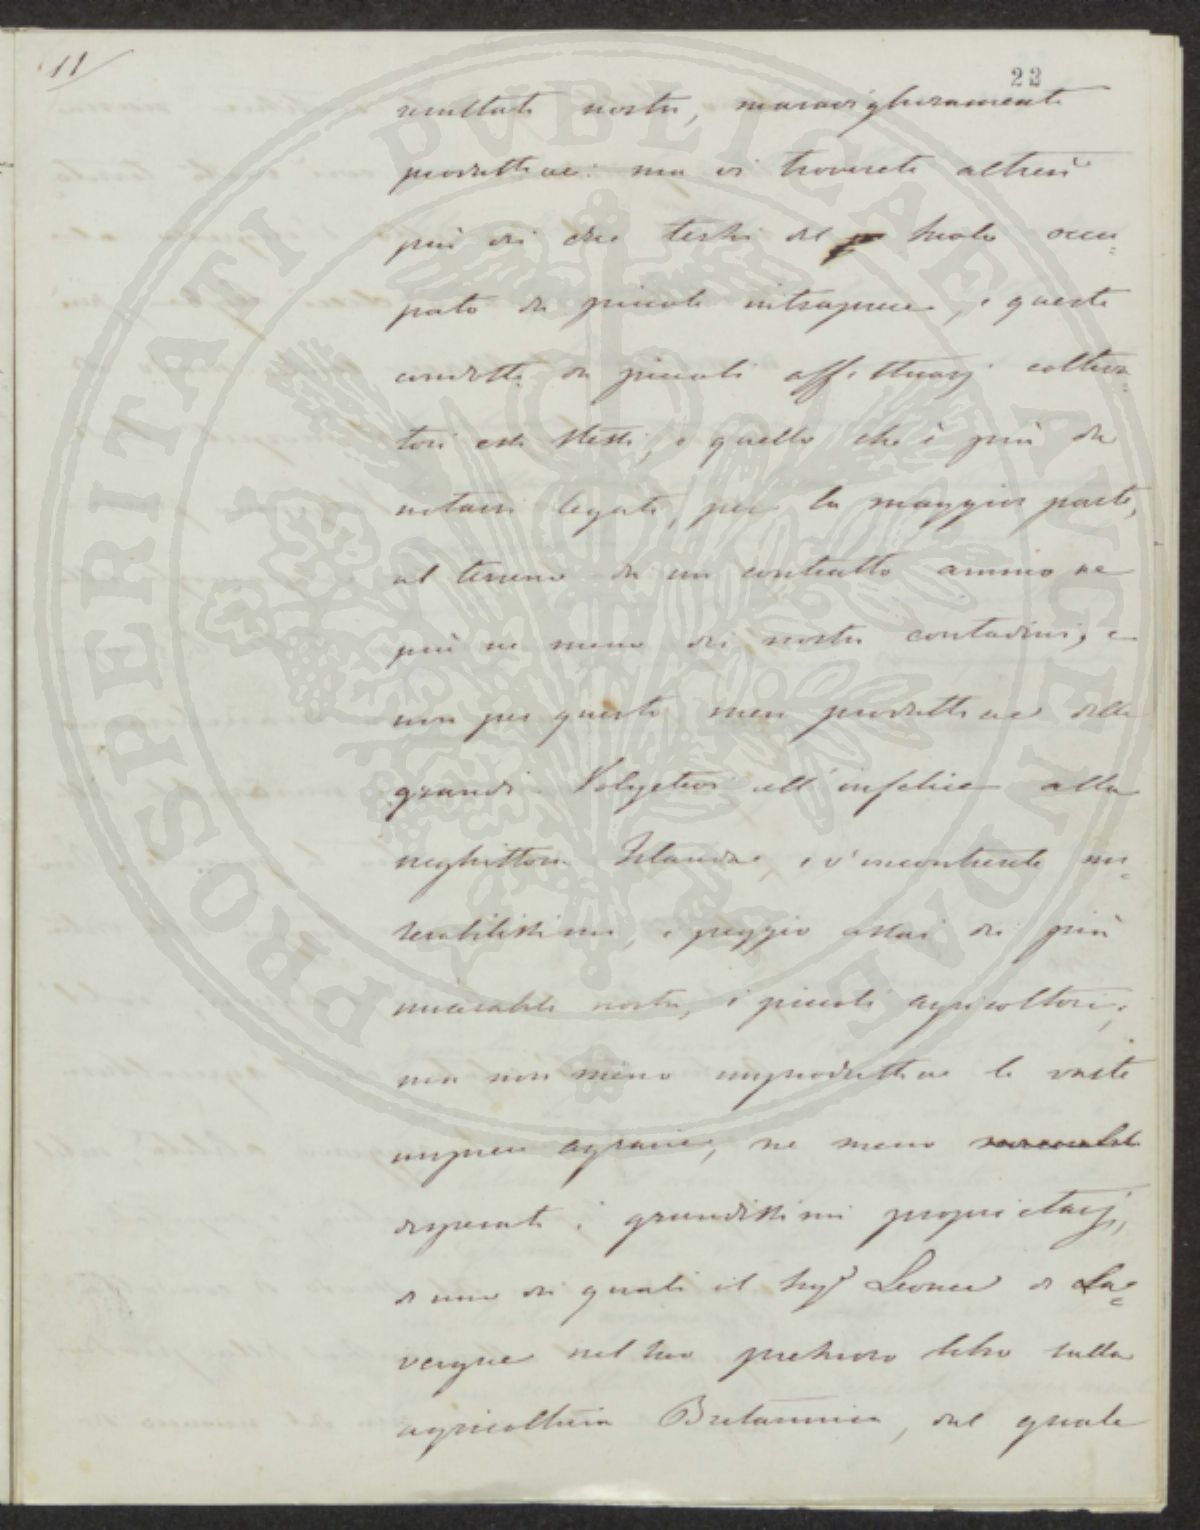 11
23
resultati nostri, maravigliosamente
produttive: ma vi troverete altresì
più di due terzi del suolo occu=
pato da piccole intraprese, e queste
condotte da piccoli affittuarj coltiva=
tori essi stessi, e quello che è più da
notarsi legati, per la maggior parte,
al terreno da un contratto annuo ne
più ne meno dei nostri contadini, e
non per questo men produttive delle
grandi. Volgetevi all'infelice alla
neghittosa Irlanda, e v'incontrerete mi=
serabilissimi, e peggio assai dei più
miserabili nostri, i piccoli agricoltori;
ma non meno improduttive le vaste
imprese agrarie, ne meno
disperati i grandissimi proprietarj,
d'uno dei quali il Sigr Leonce di La=
vergne nel suo prezioso libro sulla
agricoltura Britannica, dal quale
PROSPERITATI PVBLICAE AVGENDAE